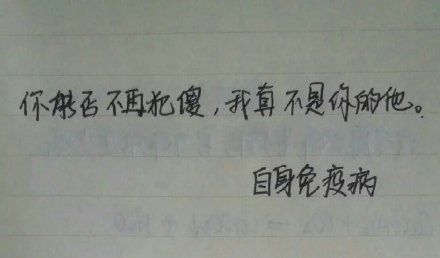 你能否不再犯傻，我真不是你的他。
自身免疫病